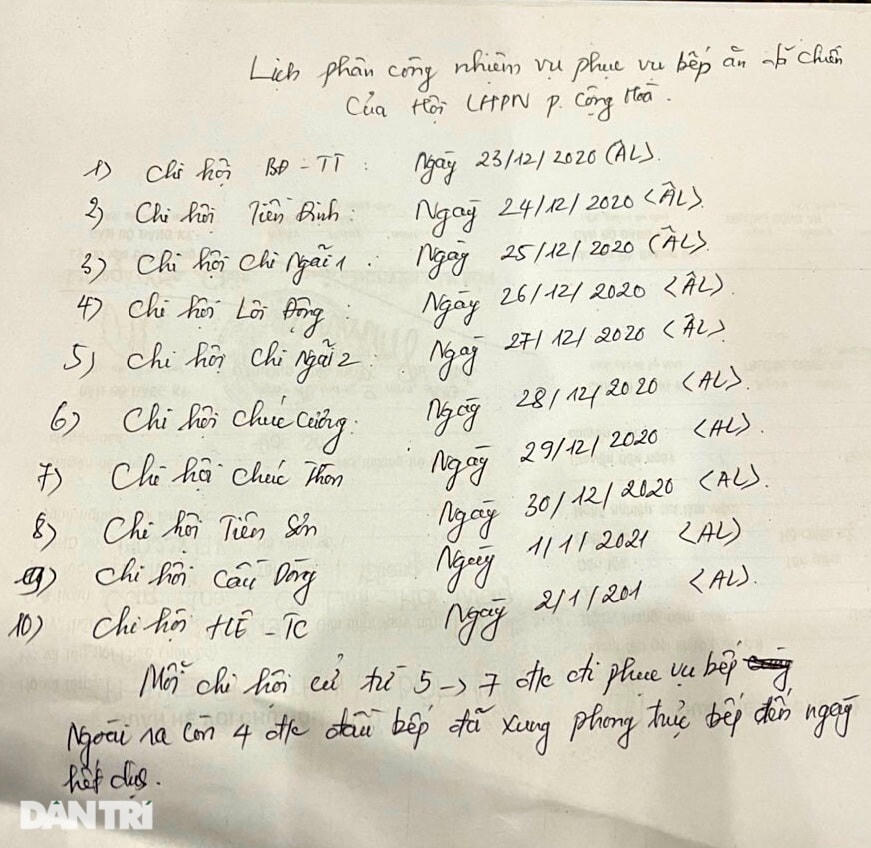 Lịch phân công nhiệm vụ phục vụ bếp ăn dã chiến
Của Hội LHPN p. Cộng Hoà.
1) Chi hội BĐ - TT : Ngày 23/12/2020 (ÂL).
2) Chi hội Tiền Định : Ngày 24/12/2020 <ÂL>.
3) Chi hội Chi Ngãi 1 : Ngày 25/12/2020 (ÂL).
4) Chi hội Lôi Động : Ngày 26/12/2020 <ÂL>.
5) Chi hội Chi Ngãi 2 : Ngày 27/12/2020 <ÂL>.
6) Chi hội Chúc Cương : Ngày 28/12/2020 <AL>.
7) Chi hội Chúc Thôn Ngày 29/12/2020 <AL>.
8) Chi hội Tiên Sơn Ngày 30/12/2020 <AL>.
9) Chi hội Cầu Dòng Ngày 1/1/2021 <AL>
10) Chi hội HĐ - TC Ngày 2/1/201 <AL>.
Mỗi chi hội cử từ 5 -> 7 đ/c đi phục vụ bếp
Ngoài ra còn 4 đ/c đầu bếp đã xung phong trực bếp đến ngày
hết dịch.
DÂN TRÍ